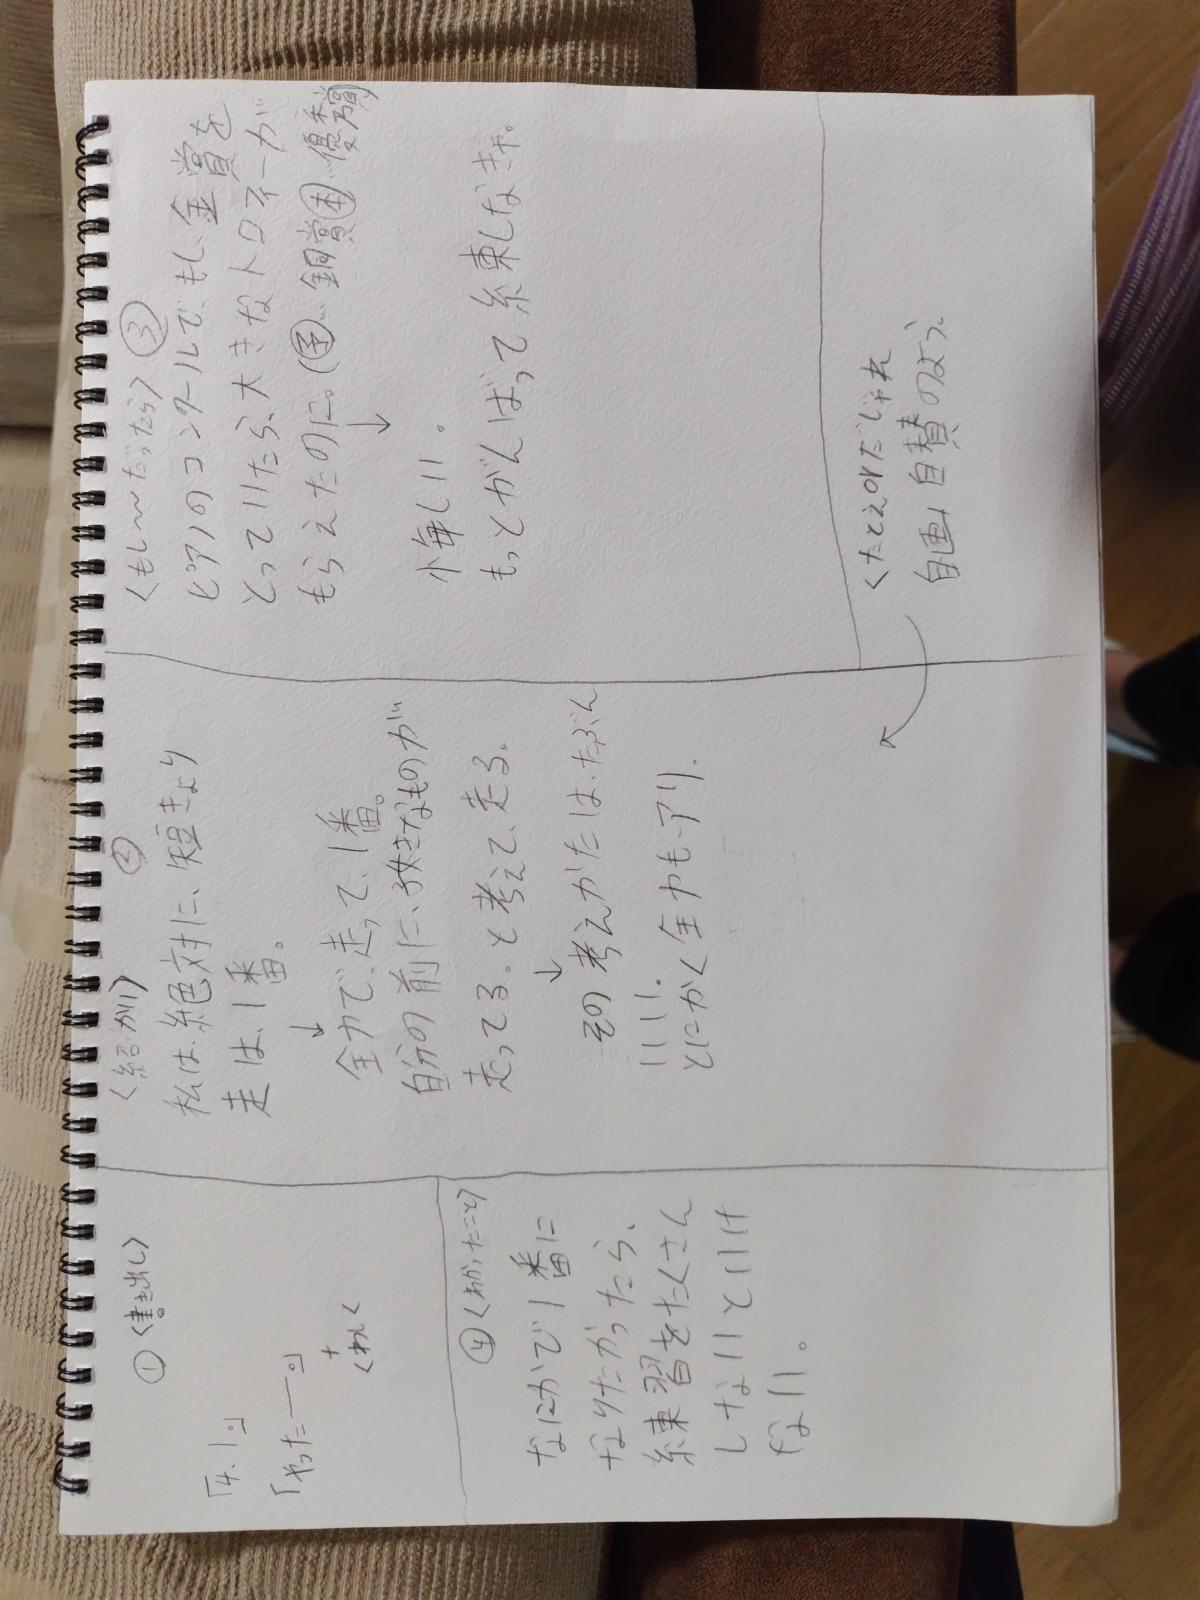 ①〈書き出し〉
「4.1。」
「やったー。」
+
くわしく
〈紹介〉②
私は、絶対に、短きょり
走は、1番。
↓
全力で、走って、1番。
自分の前に、好きなものが
走ってる。と考えて、走る。
↓
その考えかたは、たぶん
いい。
とにかく全力も、アリ。
〈もし〜だったら〉③
ピアノのコンクールで、もし、金賞を
とっていたら、大きなトロフィーが
もらえたのに。(予…銅賞 本…優秀賞)
↓
悔しい。
もっとがんばって練習しなきゃ。
④〈わかったこと〉
なにかで1番に
なりたかったら、
練習をたくさん
しないといけ
ない。
〈たとえorだじゃれ
自画自賛のよう。